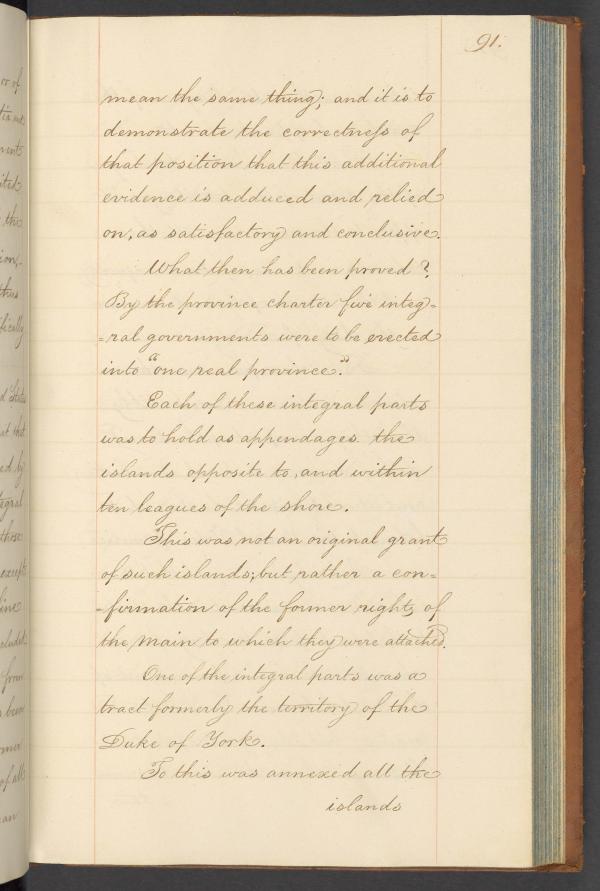 91.
mean the same thing; and it is to
demonstrate the correctness of
that position that this additional
evidence is adduced and relied
on, as satisfactory and conclusive.
What then has been proved?
By the province charter five integ=
=ral governments were to be erected
into "one real province."
Each of these integral parts
was to hold as appendages the
islands opposite to, and within
ten leagues of the shore.
This was not an original grant
of such islands; but rather a con=
=firmation of the former right, of
the main to which they were attached.
One of the integral parts was a
tract formerly the territory of the
Duke of York.
To this was annexed all the
islands